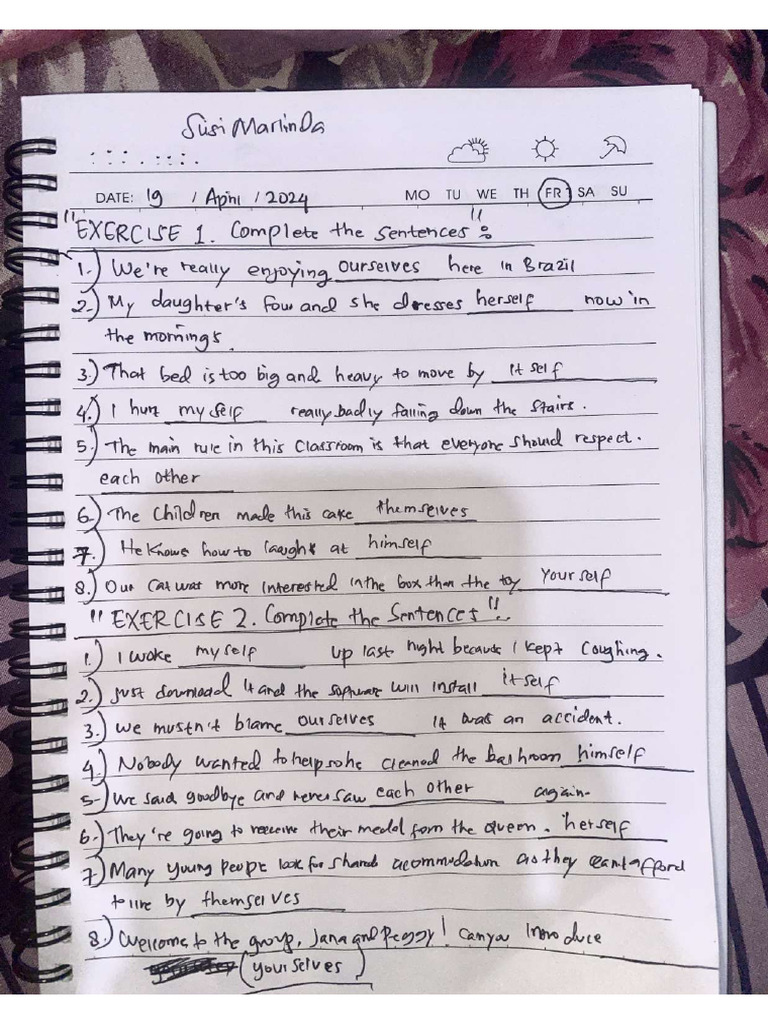 Susi Marlinda
DATE: 19 / April / 2024 MO TU WE TH FR SA SU
"EXERCISE 1. Complete the sentences":
1.) We're really enjoying ourselves here in Brazil
2.) My daughter's four and she dresses herself now in
the mornings.
3.) That bed is too big and heavy to move by it self
4.) I hurt my self really badly falling down the stairs.
5.) The main rule in this classroom is that everyone should respect.
each other
6.) The children made this cake themselves
7.) He knows how to laught at himself
8.) Our cat was more interested in the box than the toy your self
"EXERCISE 2. Complete the sentences":
1.) I woke my self up last night because I kept coughing.
2.) Just download it and the software will install itself
3.) we mustn't blame ourselves it was an accident.
4.) Nobody wanted to help so he cleaned the bathroom himself
5- We said goodbye and never saw each other again-
6.) They're going to receive their medal form the queen. herself
7) Many young people look for shared acommodation as they can't afford
to live by themselves
8.) Welcome to the group, Jana and Peggy! can you introduce
(yourselves)